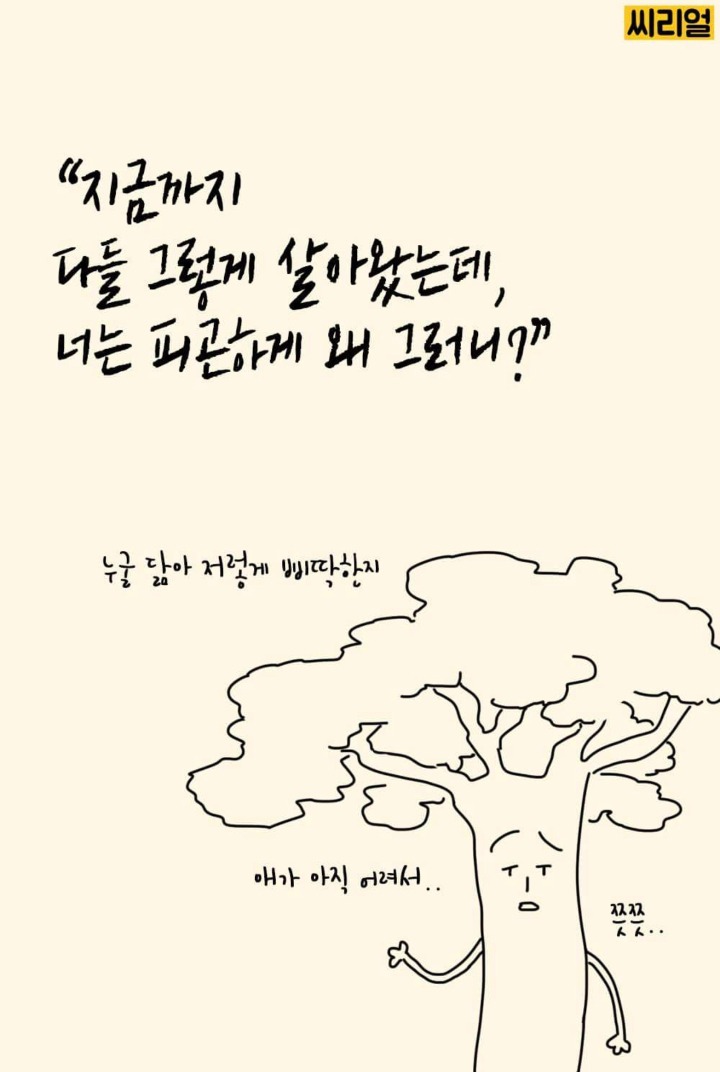 씨리얼
“지금까지
다들 그렇게 살아왔는데,
너는 피곤하게 왜 그러니?”
누굴 닮아 저렇게 삐딱한지
애가 아직 어려서..
쯧쯧..